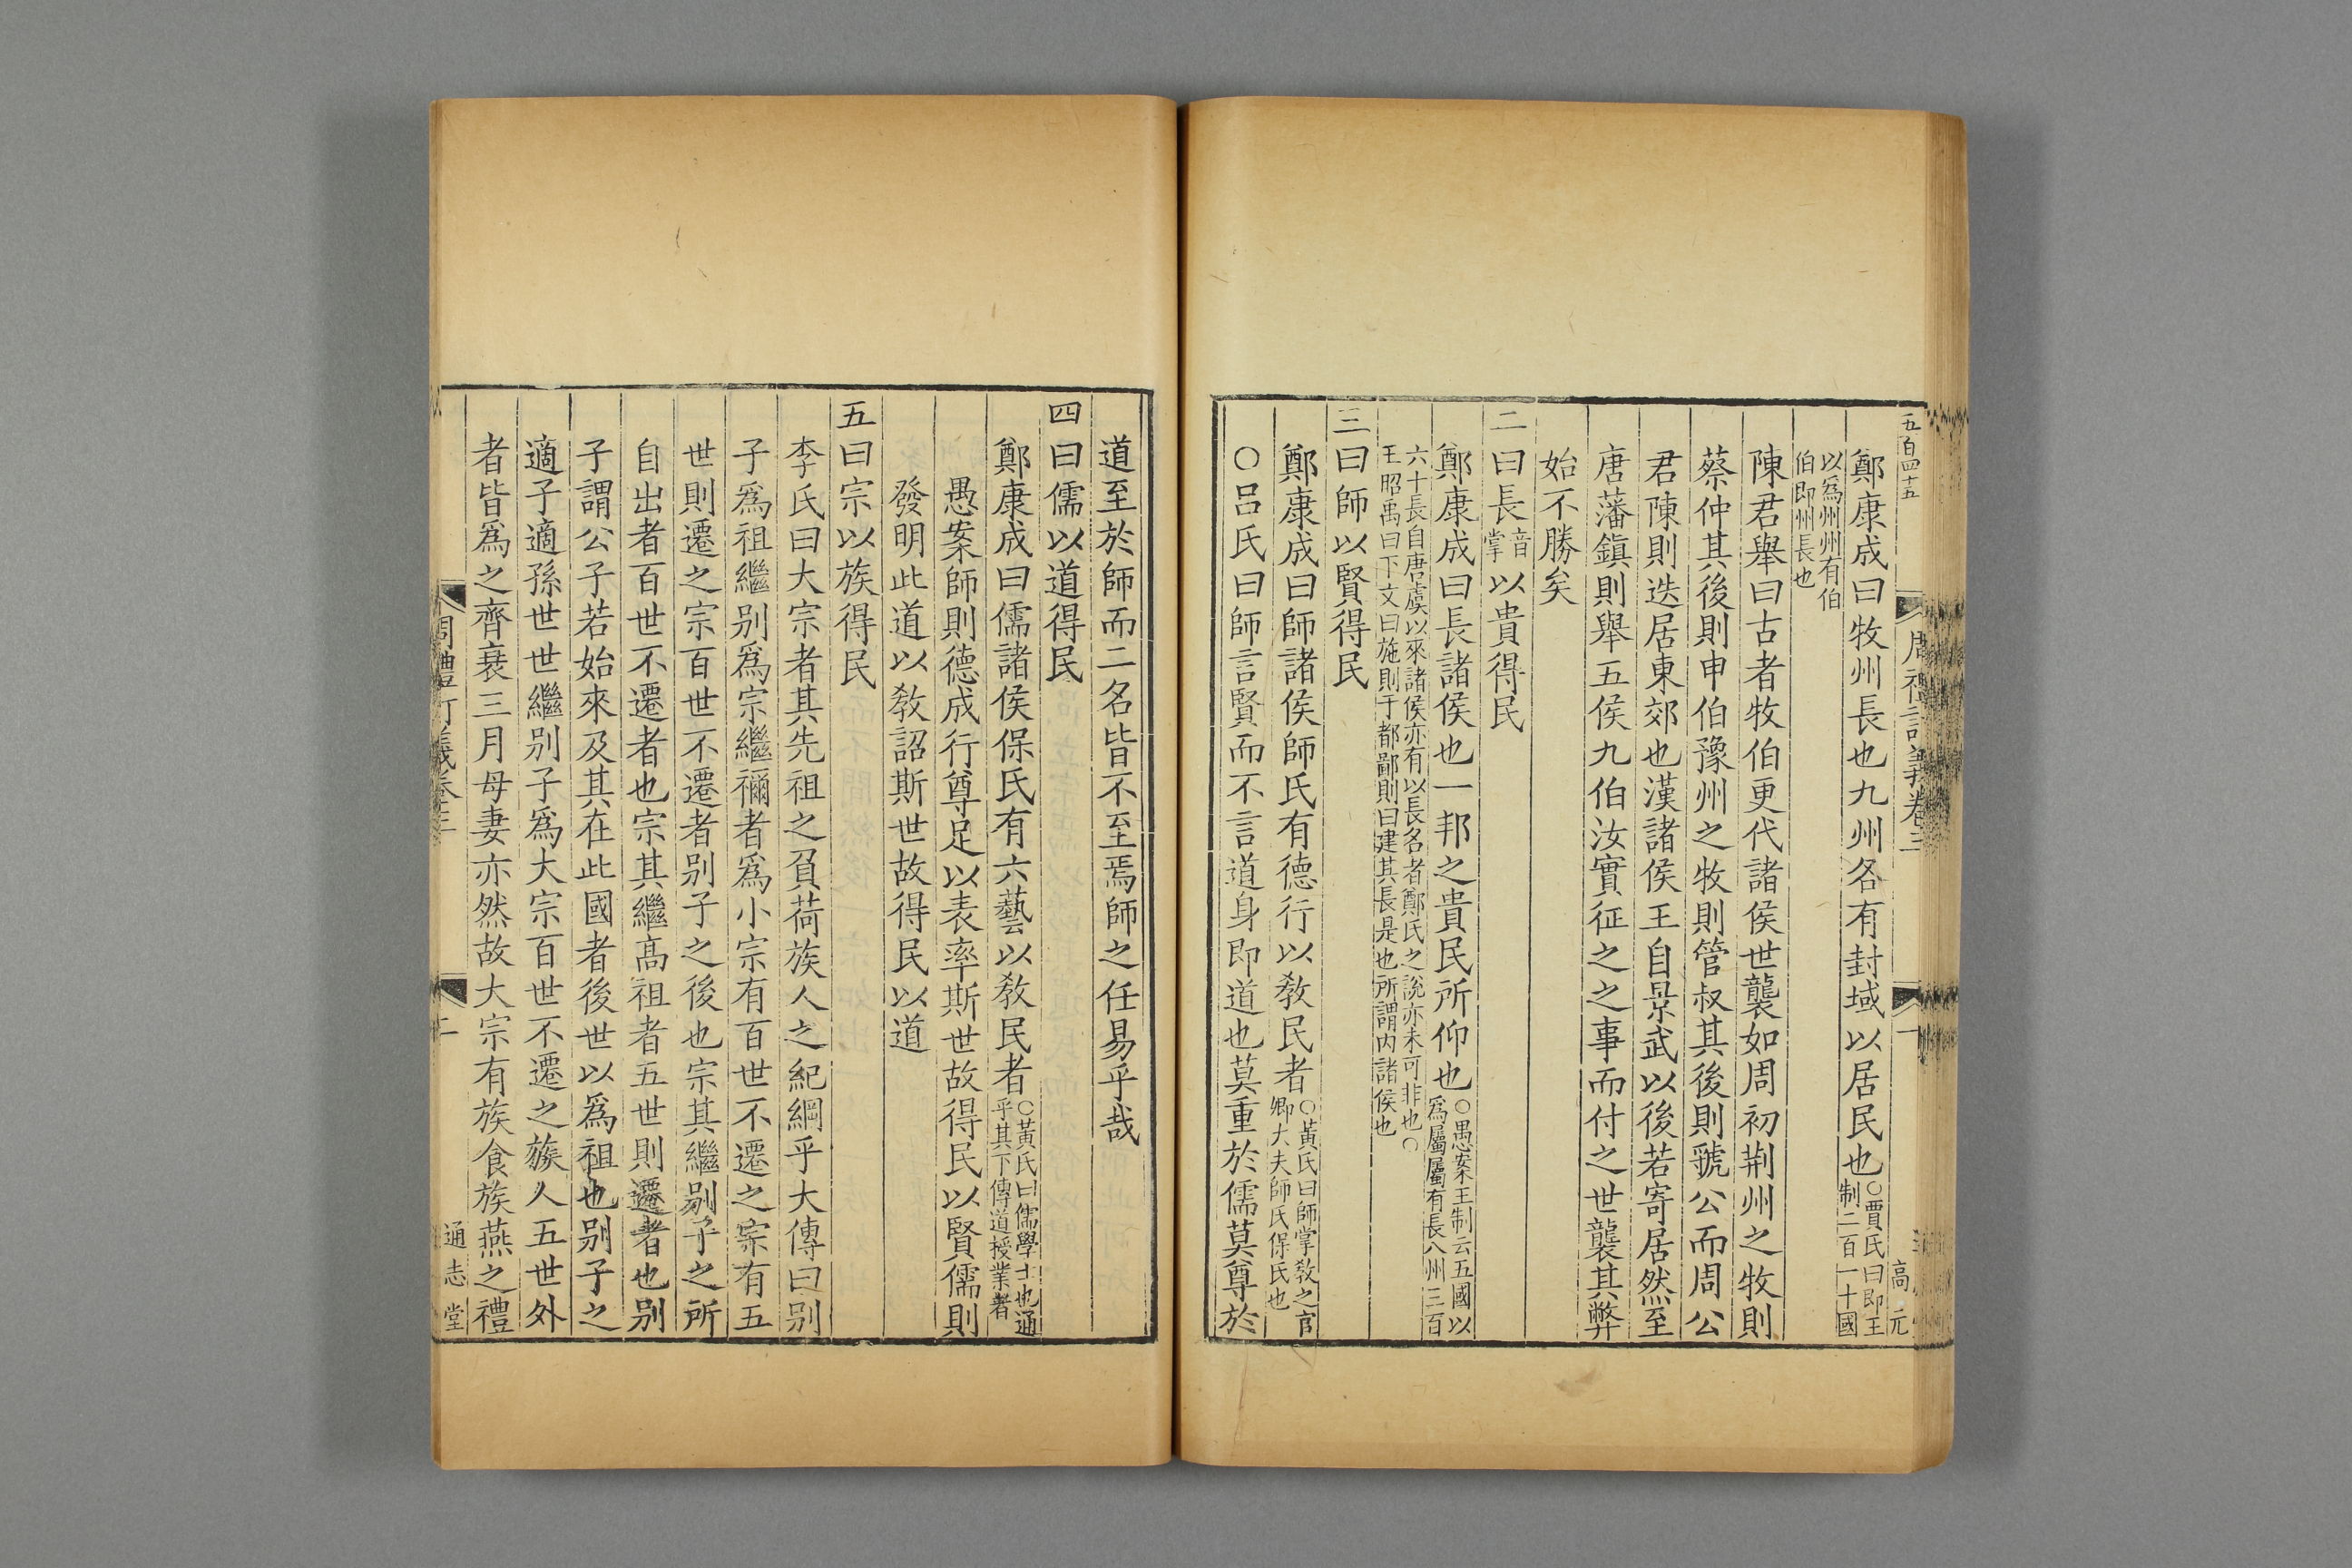 五百四十五
周禮訂義卷三
一
高元
鄭康成曰牧州長也九州各有封域以居民也○賈氏曰即王制二百一十國
以爲州州有伯伯即州長也
陳君舉曰古者牧伯更代諸侯世襲如周初荆州之牧則
蔡仲其後則申伯豫州之牧則管叔其後則虢公而周公
君陳則迭居東郊也漢諸侯王自景武以後若寄居然至
唐藩鎮則舉五侯九伯汝實征之之事而付之世襲其弊
始不勝矣
二曰長音掌以貴得民
鄭康成曰長諸侯也一邦之貴民所仰也○愚案王制云五國以爲屬屬有長八州三百
六十長自唐虞以來諸侯亦有以長名者鄭氏之説亦未可非也○王昭禹曰下文曰施則于都鄙則曰建其長是也所謂内諸侯也
三曰師以賢得民
鄭康成曰師諸侯師氏有德行以敎民者○黃氏曰師掌敎之官卿大夫師氏保氏也
○呂氏曰師言賢而不言道身即道也莫重於儒莫尊於
道至於師而二名皆不至焉師之任易乎哉
四曰儒以道得民
鄭康成曰儒諸侯保氏有六藝以敎民者○黃氏曰儒學士也通乎其下傳道授業者
愚案師則德成行尊足以表率斯世故得民以賢儒則
發明此道以敎詔斯世故得民以道
五曰宗以族得民
李氏曰大宗者其先祖之負荷族人之紀綱乎大傳曰别
子爲祖繼别爲宗繼禰者爲小宗有百世不遷之宗有五
世則遷之宗百世不遷者别子之後也宗其繼别子之所
自出者百世不遷者也宗其繼高祖者五世則遷者也别
子謂公子若始來及其在此國者後世以爲祖也别子之
適子適孫世世繼别子爲大宗百世不遷之族人五世外
者皆爲之齊衰三月母妻亦然故大宗有族食族燕之禮
周禮訂義卷三
二
通志堂